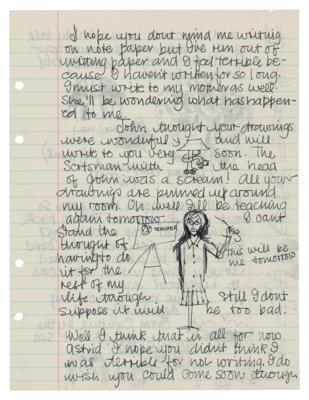 I hope you dont mind me writing
on note paper but I've run out of
writing paper and I feel terrible be-
cause I haven't written for so long.
I must write to my mother as well
She'll be wondering what has happen-
ed to me...
John thought your drawings
were wonderful and will
write to you very soon. The
Scotsman with the head
of John was a scream! All your
drawings are pinned up around
my room. Oh well I'll be teaching
again tomorrow I cant
stand the TEACHER
thought of
having to do This will be
it for the me tomorrow
rest of my
life though Still I dont
suppose it will be too bad.
Well I think that is all for now
Astrid I hope you didnt think I
was terrible for not writing. I do
wish you could come soon though